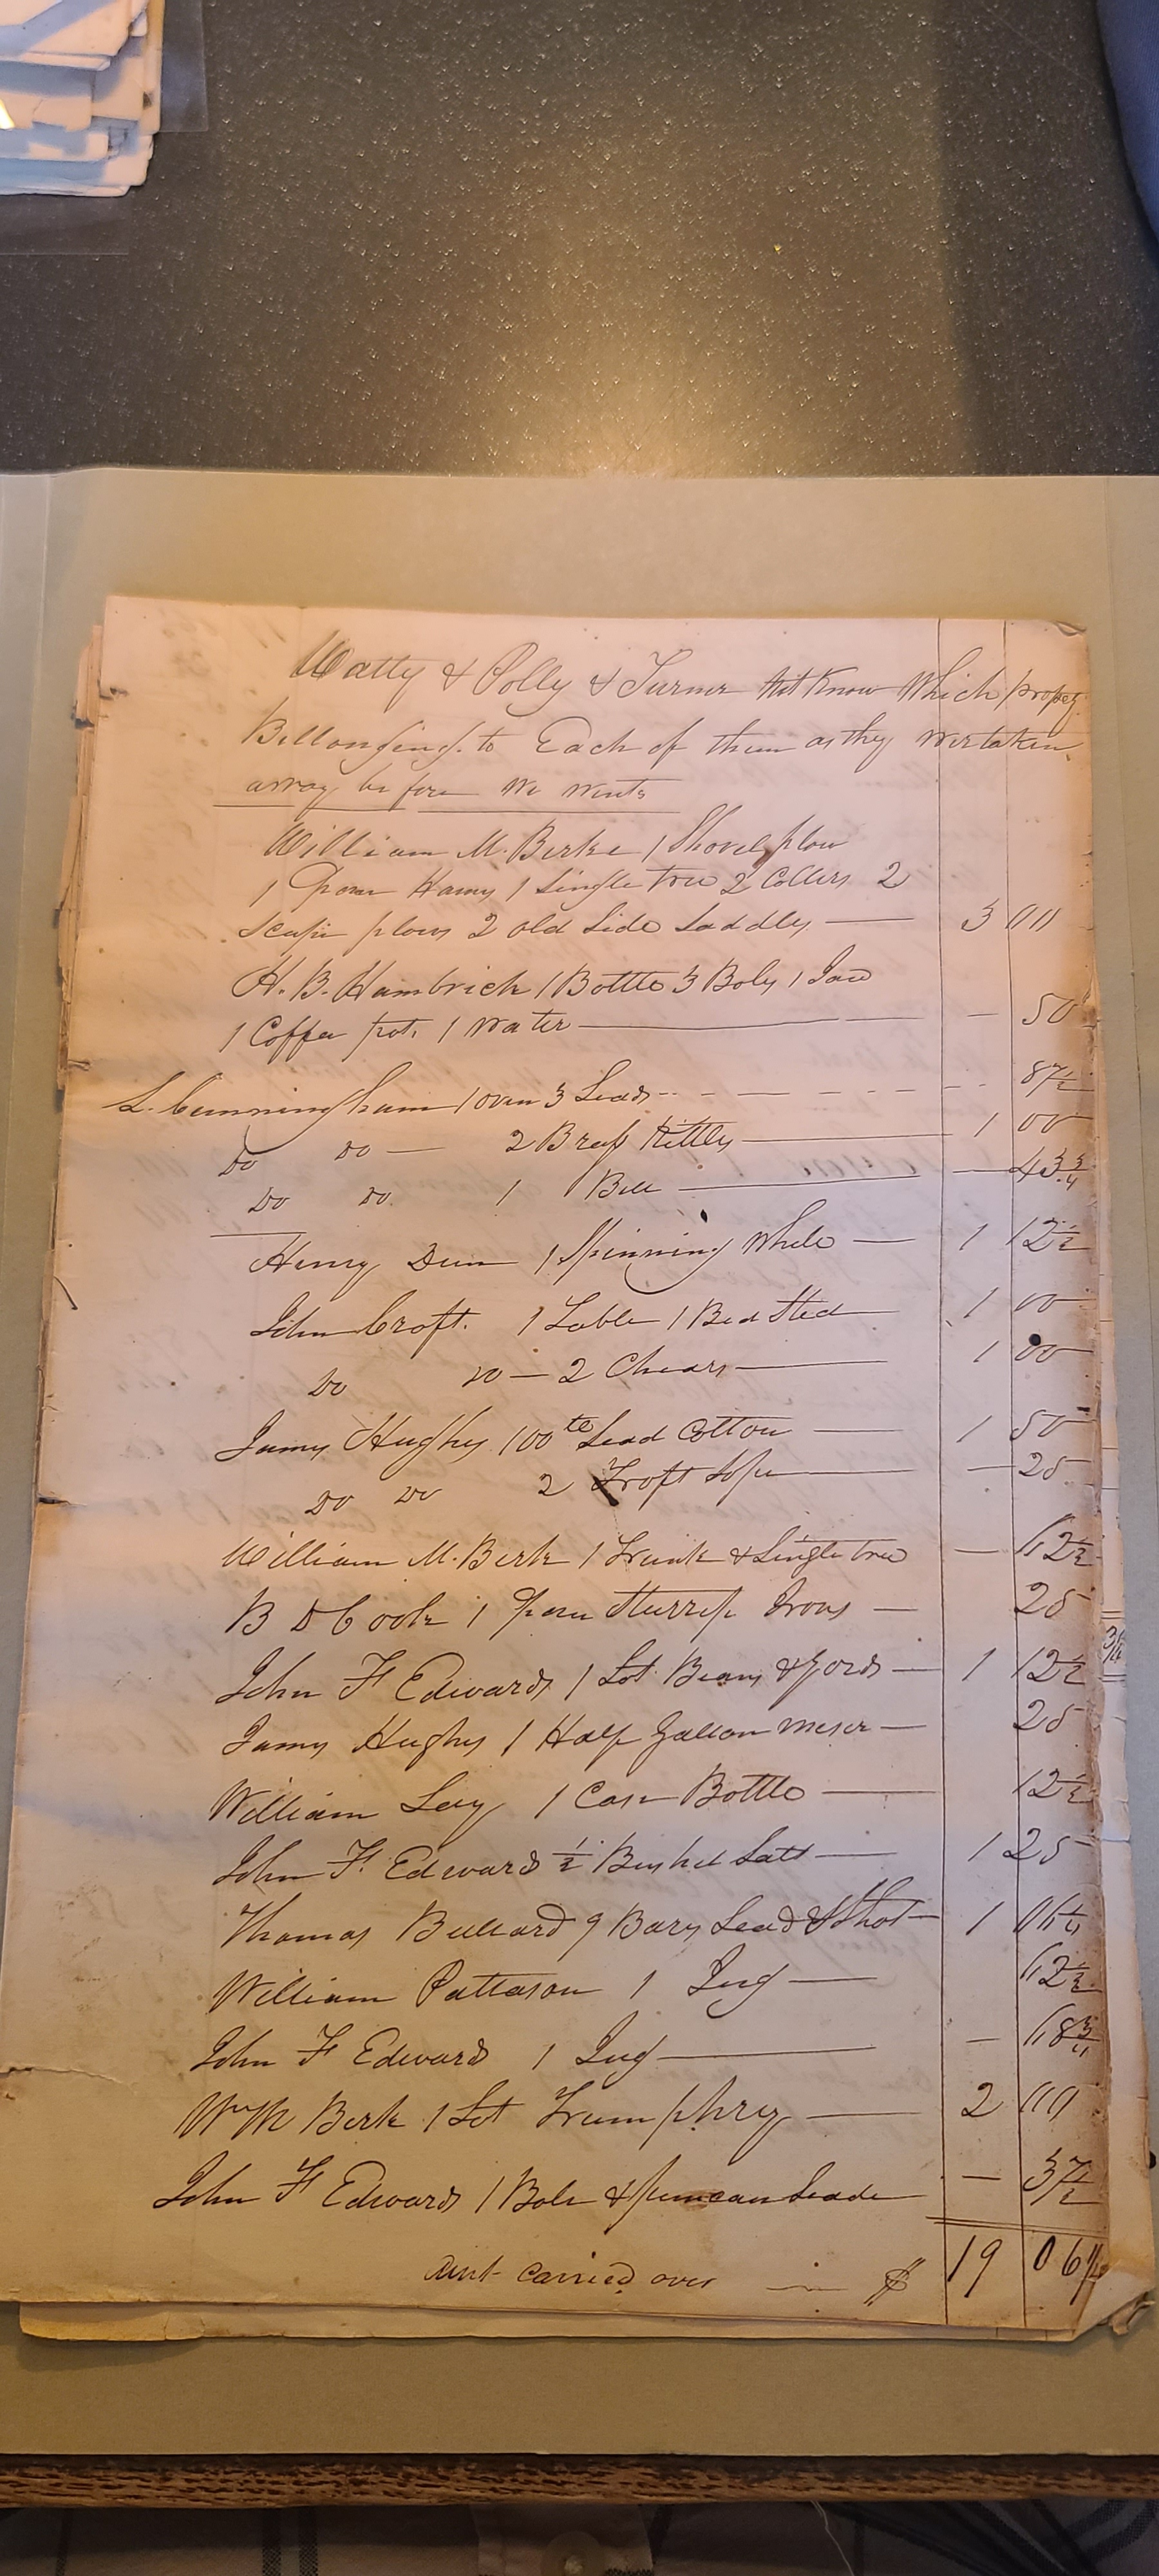 Watty & Polly & Turner Not Know Which propey
Bellonging to Each of them as they wertaken
away be fore We Wents
William M. Berke 1 Shovel plow
1 Pear Hamy 1 Single tree 2 Collers 2
plows 2 old Side Saddly — 3 00
H. B. Hambrick 1 Bottle 3 Boly 1 Jar
1 Coffee pot. 1 Water — — 50
L. Cunningham 1 oven 3 Leads - - - 87½
Do Do — 2 Brass Kittly — 1 00
Do Do. 1 Bell — — 43¾
Henry Dunn 1 Spinning Whele — 1 12½
John Croft. 1 Table 1 Bed Sted 1 00
Do Do — 2 Chears — 1 00
Jamy Hughy 100 te Sead Cotton — 1 50
Do Do 2 — — 25
William M. Berk 1 Trunk & Single tree — 12½
B D Cook 1 Pear Sturrip Irons — 25
John F Edwards 1 Lot Beans & Gords — 1 12½
Jamy Hughy 1 Half Gallon meser — 25
William Ley 1 Case Bottle — 12½
John F. Edwards ½ Bushel Salt — 1 25
Thomas Bulliard 9 Bars Lead & Shot — 1 06¼
William Pattason 1 Jug — 12½
John F Edwards 1 Jug — — 18¾
Wm M Berk 1 Lot Trumphrey — 2 00
John F Edwards 1 Bole & — 37½
Amt carried over — $ 19 06¼